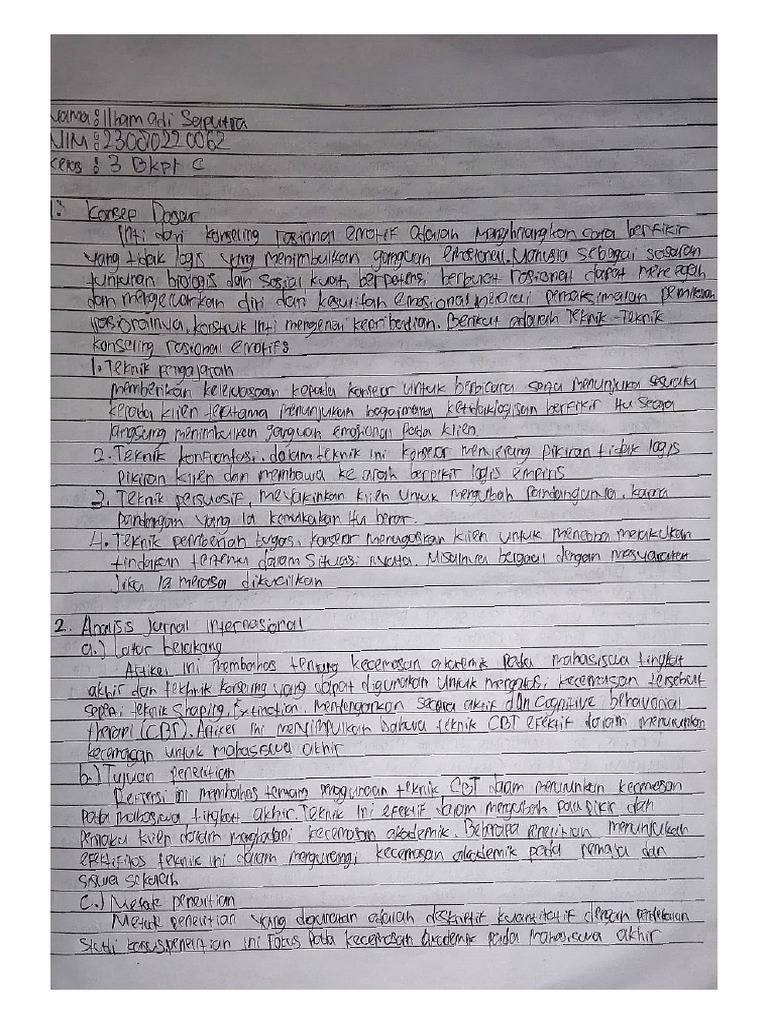 Nama : Ilham Adi Saputra
NIM : 23080220062
Kelas : 3 BKPI C
1. Konsep Dasar
Inti dari konseling rasional emotif adalah Menghilangkan cara berfikir
yang tidak logis yang menimbulkan gangguan emosional. Manusia sebagai sasaran
tunjuran biologis dan sosial kuat, berpotensi berbuat rasional dapat mencegah
dan mengeluarkan diri dari kesulitan emosional melalui pemaksimalan pemikiran
rasionalnya, konstruk inti mengenai kepribadian. Berikut adalah Teknik-Teknik
konseling rasional emotifs
1. Teknik pengajaran
memberikan keleluasaan kepada konselor untuk berbicara serta menunjukan sesuatu
kepada klien terutama menunjukan bagaimana ketidaklogisan berfikir itu secara
langsung menimbulkan gangguan emotional pada klien.
2. Teknik konfrontasi. dalam teknik ini konselor menyerang pikiran tidak logis
pikiran klien dan membawa ke arah berpikir logis empiris
3. Teknik persuasif, meyakinkan klien untuk mengubah pandangannya. karna
pandangan yang ia kemukakan itu benar.
4. Teknik pemberian tugas, konselor menugaskan klien untuk mencoba melakukan
tindakan tertentu dalam situasi nyata. Misalnya bergaul dengan masyarakat
jika ia merasa dikucilkan
2. Analisis jurnal internasional
a.) Latar belakang
Artikel ini membahas tentang kecemasan akademik pada mahasiswa tingkat
akhir dan tekhnik konseling yang dapat digunakan untuk mengatasi kecemasan tersebut
seperti teknik Shaping, Extinction. Mendengarkan secara aktif dan Cognitive behavorial
therapi (CBT). Artikel ini menyimpulkan bahwa teknik CBT efektif dalam menurunkan
kecemasan untuk mahasiswa akhir
b.) Tujuan penelitian
Referensi ini membahas tentang penggunaan teknik CBT dalam menurunkan kecemasan
pada mahasiswa tingkat akhir. Teknik ini efektif dalam mengubah pola pikir dan
perilaku klien dalam menghadapi kecemasan akademik. Beberapa penelitian menunjukan
efektifitas teknik ini dalam mengurangi kecemasan akademik pada remaja dan
siswa sekolah
c.) Metode penelitian
Metode penelitian yang digunakan adalah deskriptif kuantitatif dengan pendekatan
studi kasus penelitian ini fokus pada kecemasan akademik pada mahasiswa akhir